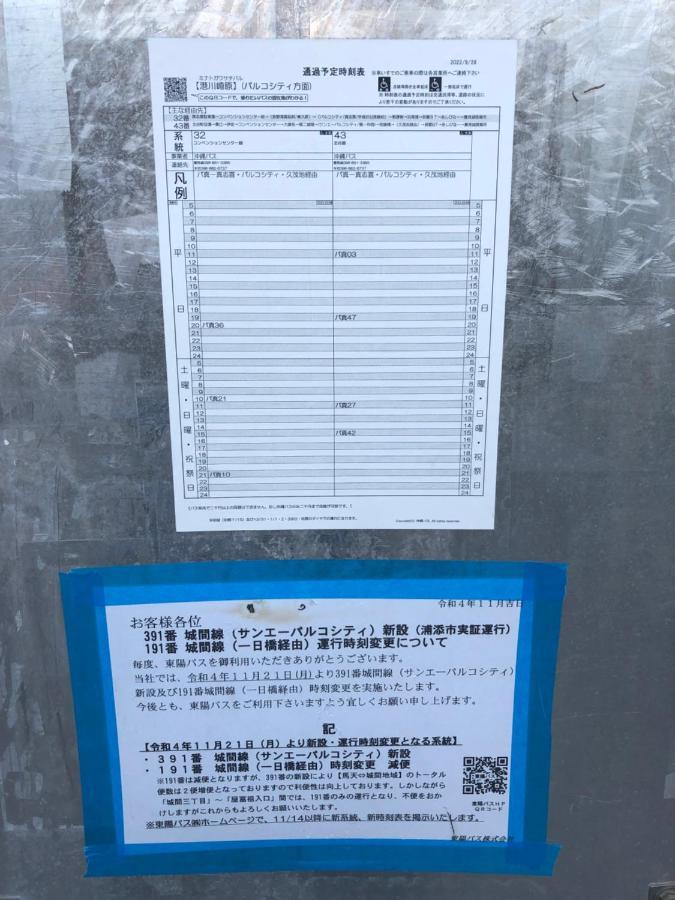 2022/9/28
通過予定時刻表
ミナトガワサキバル
【港川崎原】(パルコシティ方面)
※車いすでのご乗車の際は各営業所へご連絡下さい
【主な経由先】
32番
43番
系統 32 43
コンベンションセンター線
事業者 沖縄バス 沖縄バス
連絡先
凡例 パ真ー真志喜・パルコシティ・久茂地経由 パ真ー真志喜・パルコシティ・久茂地経由
平日
5
6
7
8
9
10
11 パ真03
12
13
14
15
16
17
18
19 パ真47
20 パ真36
21
22
23
24
土曜・日曜・祝祭日
5
6
7
8
9
10 パ真21
11 パ真27
12
13
14
15 パ真42
16
17
18
19
20
21 パ真10
22
23
24
令和4年11月吉日
お客様各位
391番 城間線(サンエーパルコシティ)新設(浦添市実証運行)
191番 城間線(一日橋経由)運行時刻変更について
毎度、東陽バスを御利用いただきありがとうございます。
当社では、令和4年11月21日(月)より391番城間線(サンエーパルコシティ)
新設及び191番城間線(一日橋経由)時刻変更を実施いたします。
今後とも、東陽バスをご利用下さいますよう宜しくお願い申し上げます。
記
【令和4年11月21日(月)より新設・運行時刻変更となる系統】
・391番 城間線(サンエーパルコシティ)新設
・191番 城間線(一日橋経由)時刻変更 減便
※191番は減便となりますが、391番の新設により【馬天⇔城間地域】のトータル
便数は2便増便となっておりますので利便性は向上しております。しかしながら
「城間三丁目」～「屋富祖入口」間では、191番のみの運行となり、不便をおか
けしますがこれからもよろしくお願いいたします。
※東陽バス㈱ホームページで、11/14以降に新系統、新時刻表を掲示いたします。
東陽バスHP
QRコード
東陽バス株式会社